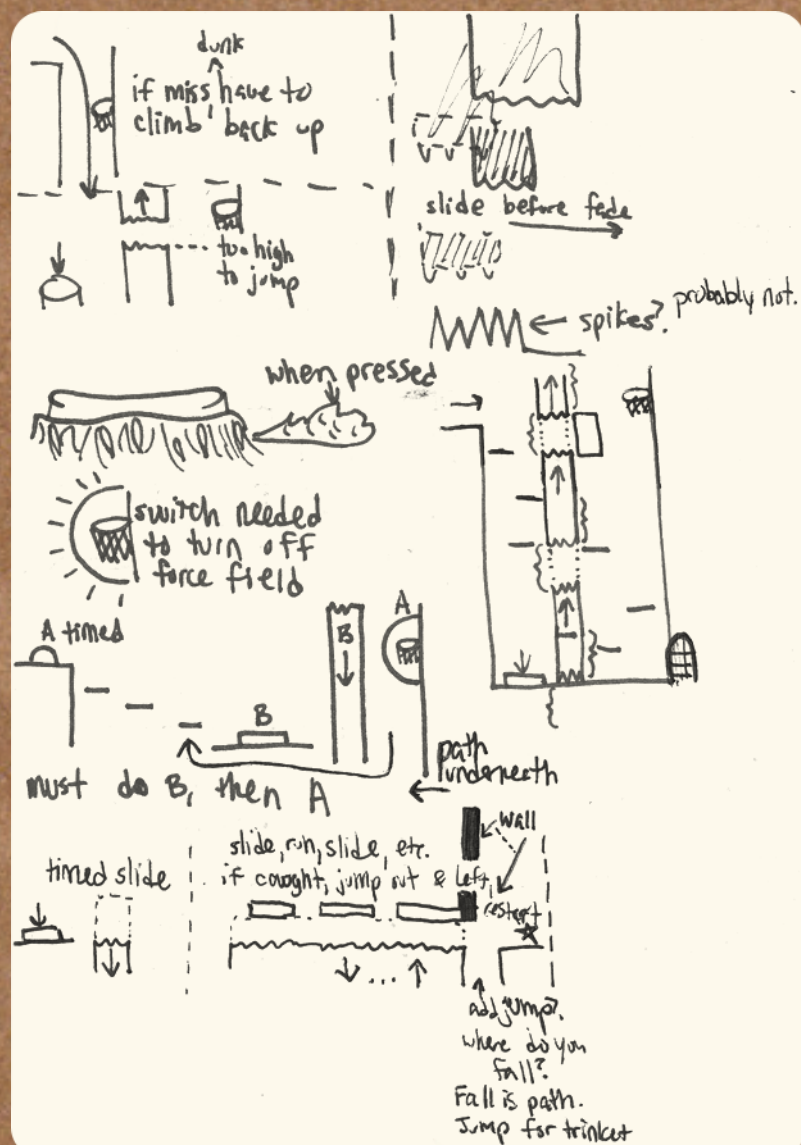 dunk
if miss have to
climb back up
too high
to jump
slide before fade
spikes?
probably not.
when pressed
switch needed
to turn off
force field
A timed
B
A
B
must do B, then A
path
underneath
timed slide
slide, run, slide, etc.
if caught, jump out & left,
restart
wall
add jump?
where do you
fall?
Fall is path.
Jump for trinket